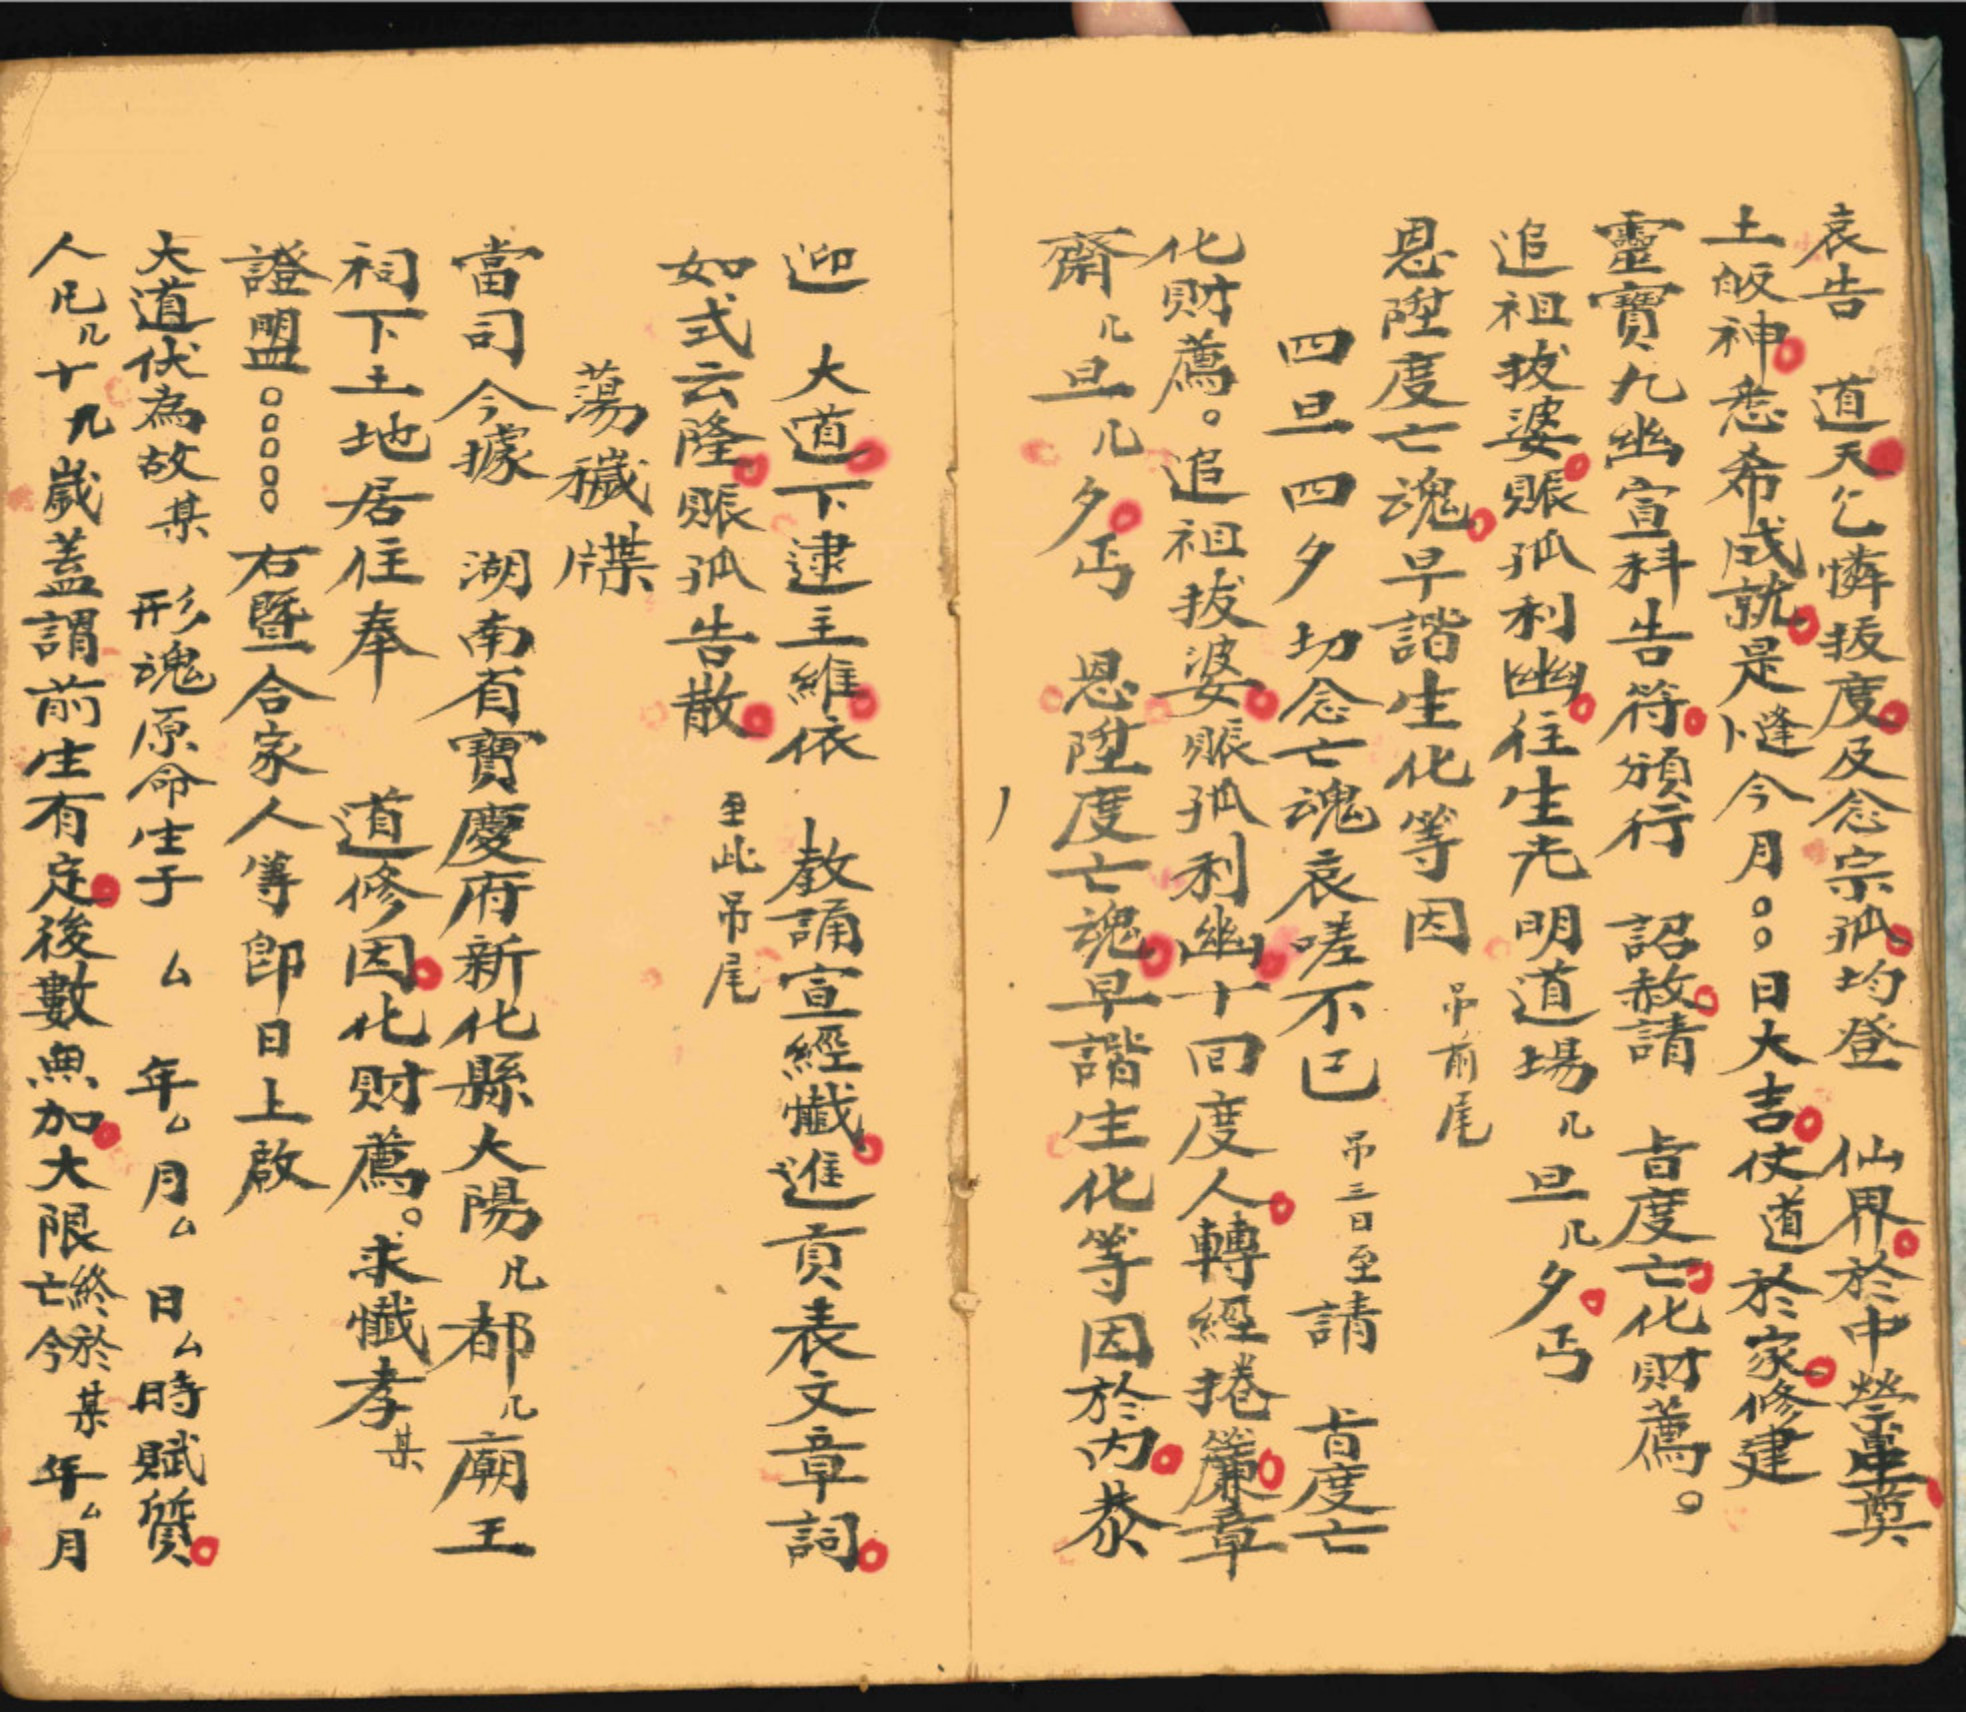 哀告　道天乞憐拔度及念宗孤均登　仙界於中瑩奠
土皈神悉希成就是卜逢今月〇〇日大吉仗道於家修建
靈寶九幽宣科告符頒行　詔赦請　旨度亡化財薦。
追祖拔婆賑孤利幽往生光明道場几旦几夕丐
恩陞度亡魂早諧生化等因　吊前尾
四旦四夕　切念亡魂哀嗟不已　吊三日至　請　旨度亡
化財薦。追祖拔婆賑孤利幽十回度人轉經捲簾章
齋几旦几夕丐　恩陞度亡魂早諧生化等因於內恭
迎　大道下逮主維依　教誦宣經懺進貢表文章詞
如式云隆賑孤告散　至此吊尾
蕩穢牒
當司今據　湖南省寶慶府新化縣大陽几都几廟王
祠下土地居住奉　道修因化財薦。求懺孝某
證盟〇〇〇〇〇右暨合家人等卽日上啟
大道伏為故某　形魂原命生于　厶　年厶月厶　日厶時賦質
人凡几十九歲蓋謂前生有定後數無加大限終於亡今某年厶月